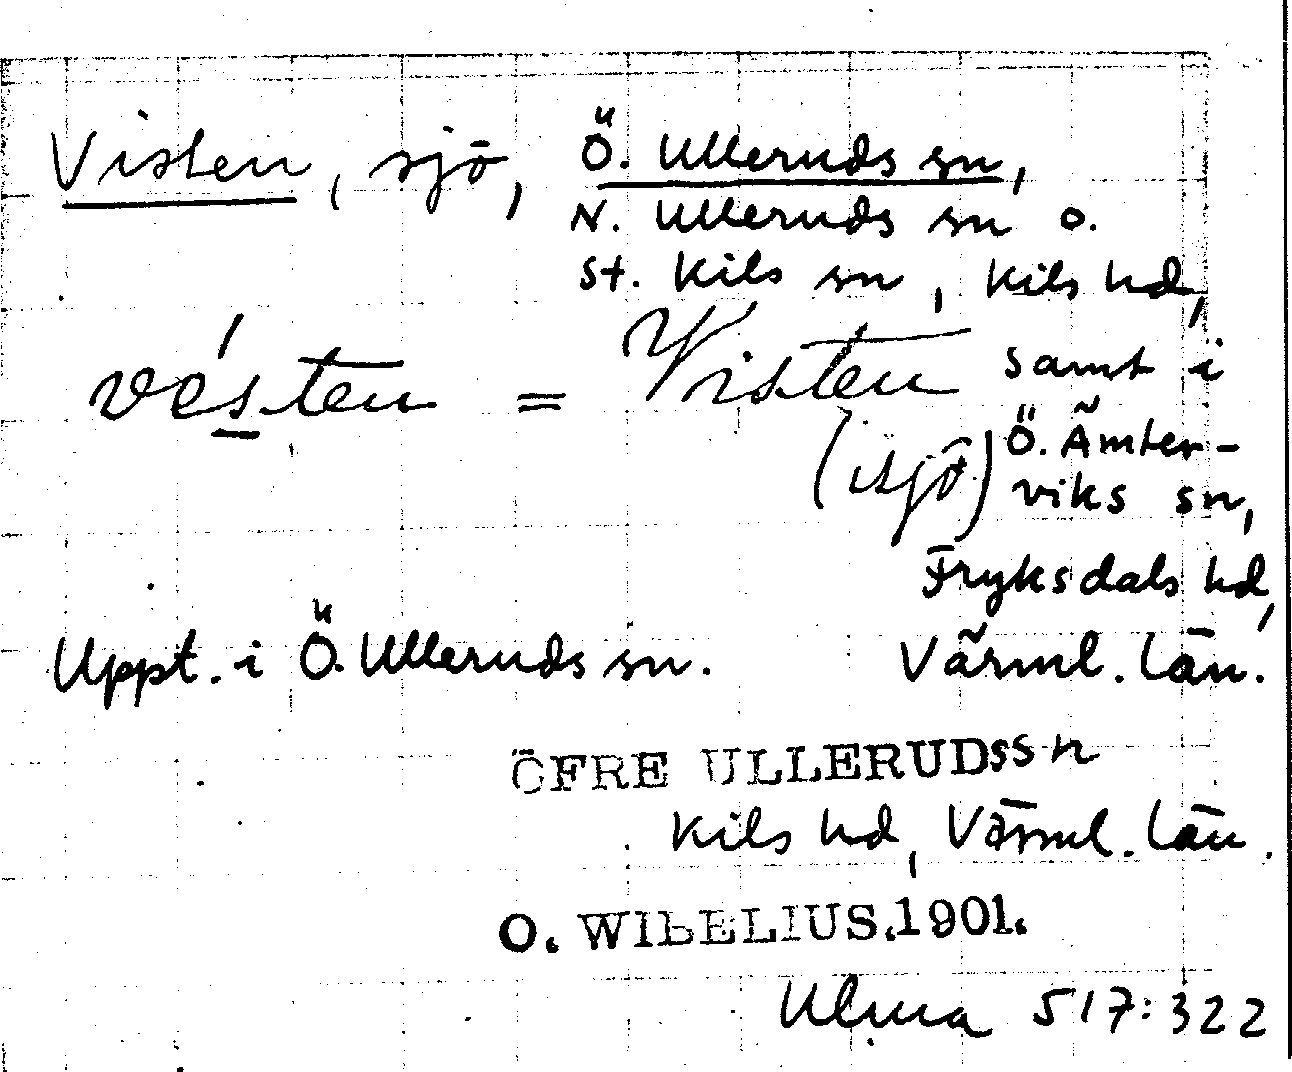 Visten, sjö, Ö. Ulleruds sn,
N. Ulleruds sn o.
St. Kils sn, Kils hd,
samt i
Ö. Ämter-
viks sn,
Fryksdals hd,
Värml. län.
vés̲ten = Visten
(sjö)
Uppt. i Ö. Ulleruds sn.
ÖFRE ULLERUDSsn
Kils hd, Värml. län.
O. WIBELIUS.1901.
Ulma 517:322